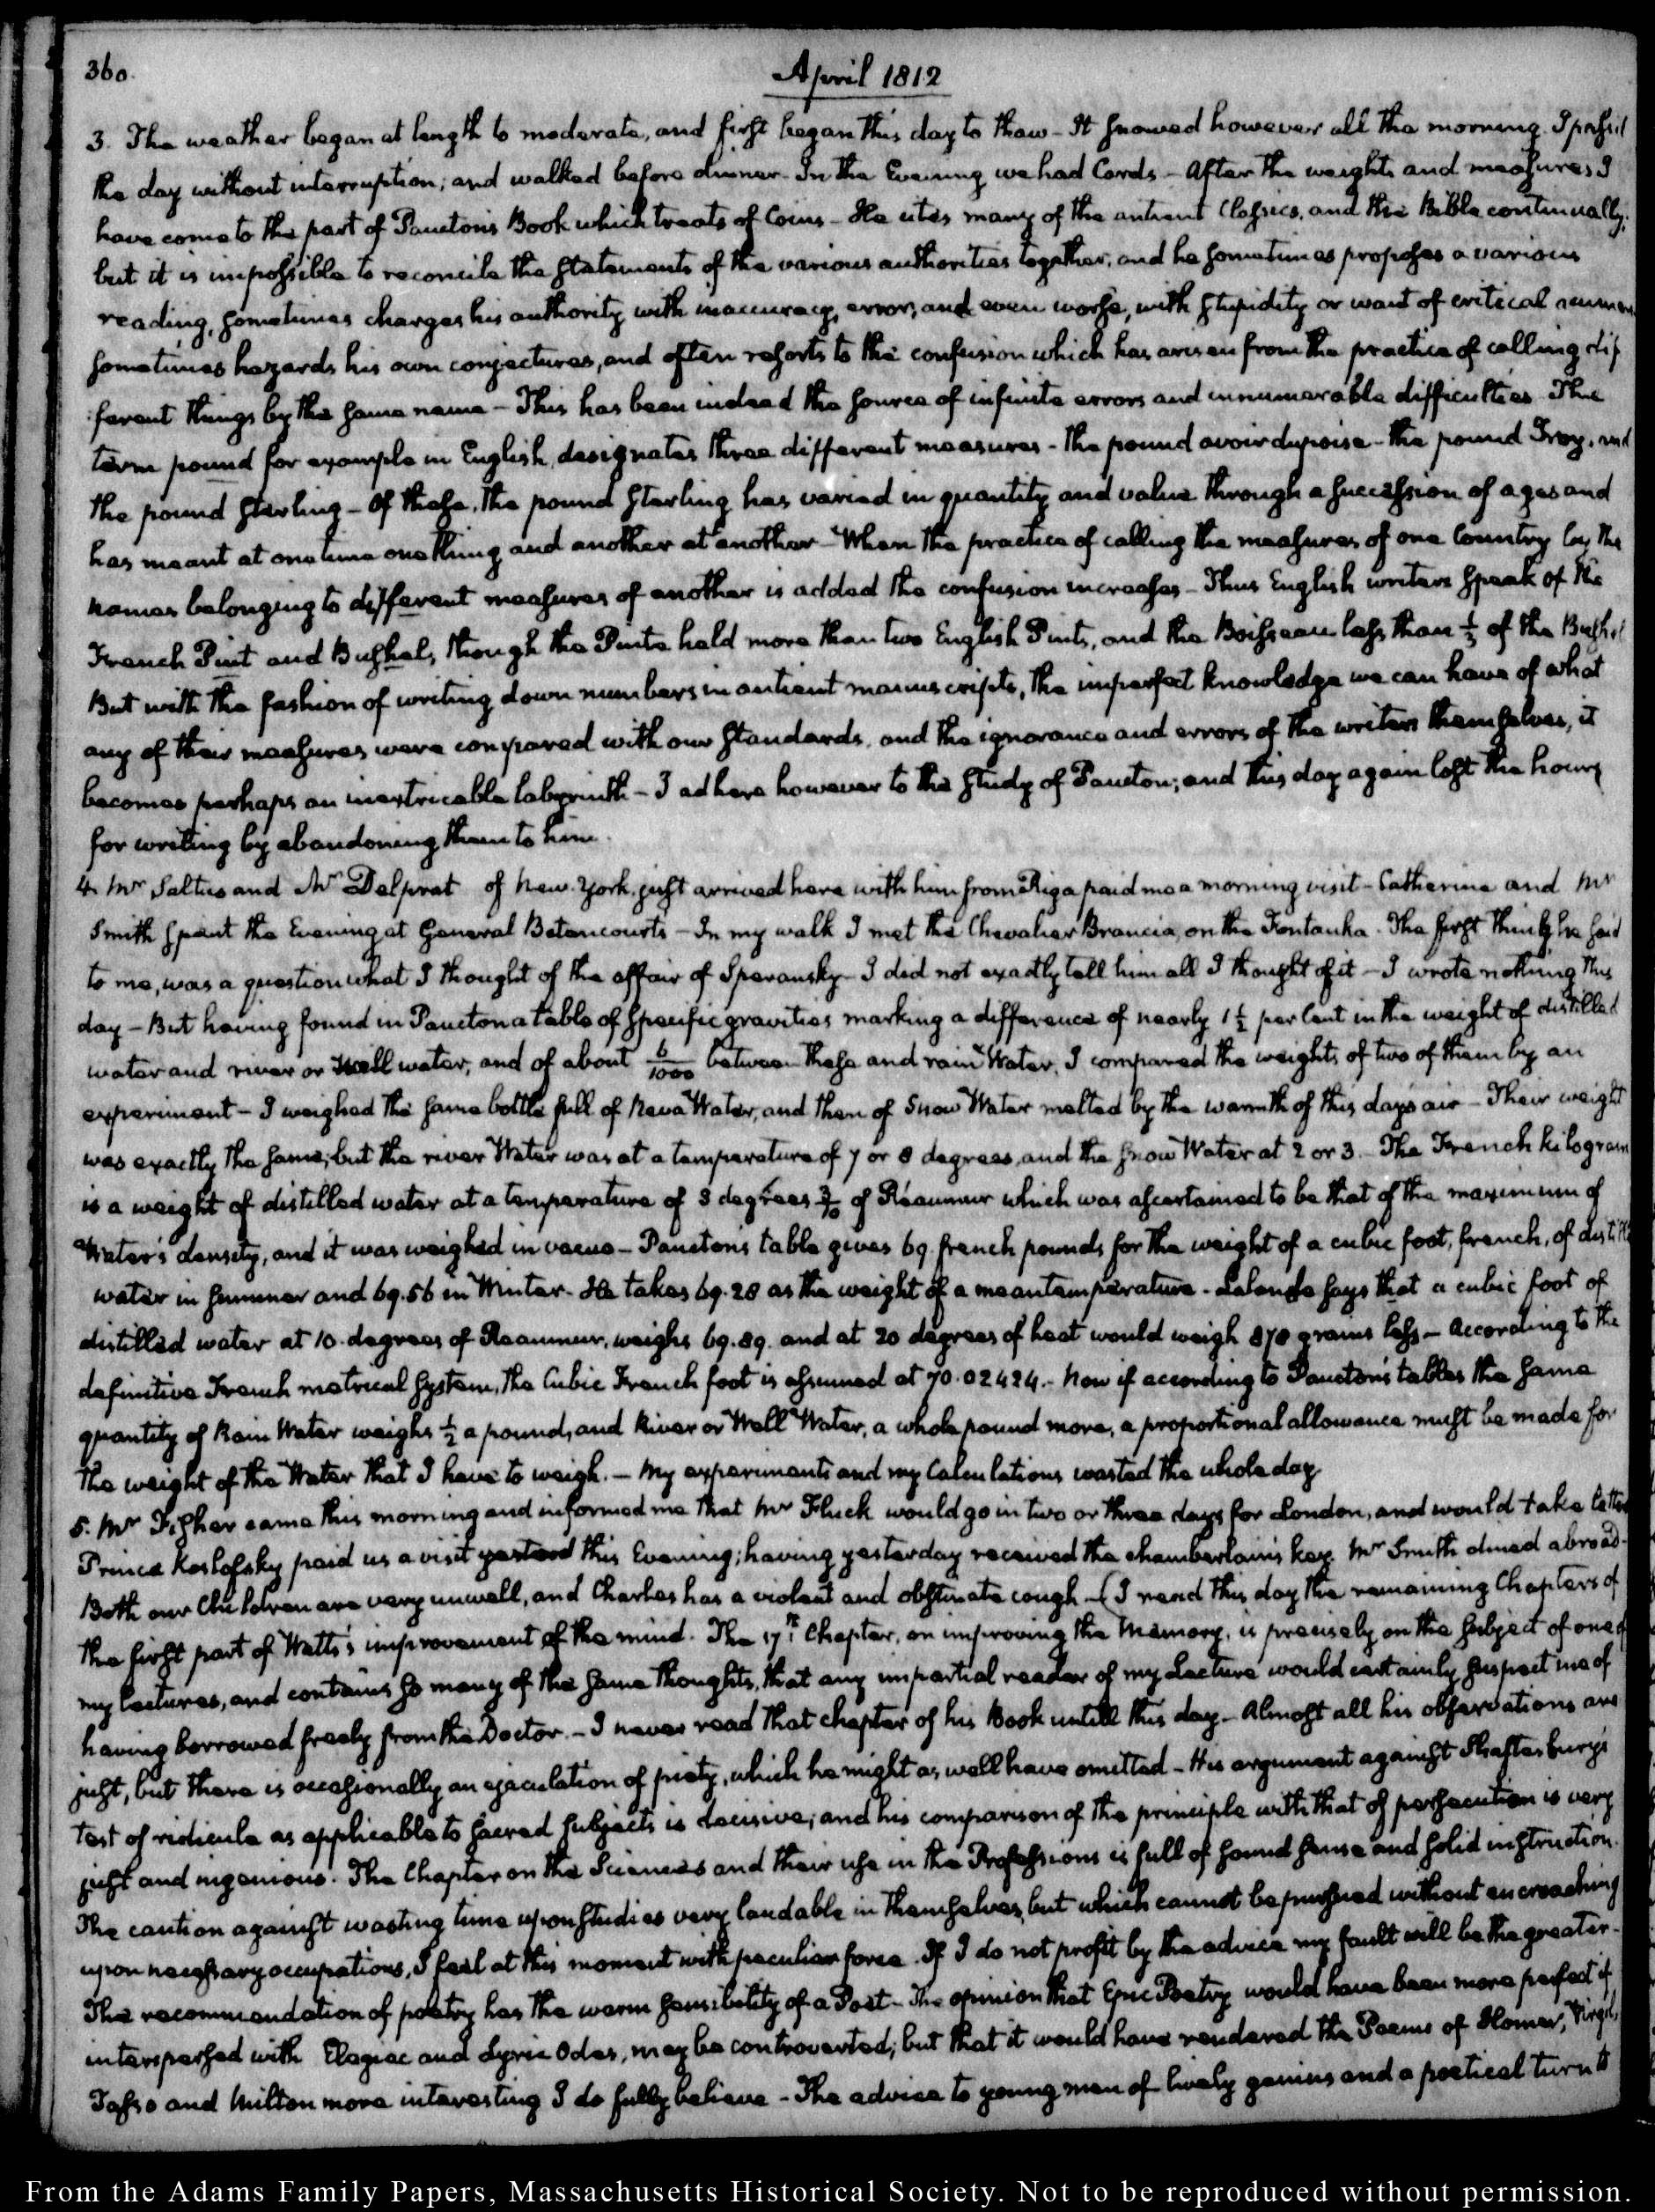 360.
April 1812
3. The weather began at length to moderate, and first began this day to thaw - It snowed however all the morning. I passed
the day without interruption; and walked before dinner. In the Evening we had Cards - After the weights and measures I
have come to the part of Paucton's Book which treats of Coins - He cites many of the antient Classics, and the Bible continually;
but it is impossible to reconcile the statements of the various authorities together, and he sometimes proposes a various
reading, sometimes charges his authority with inaccuracy, error, and even worse, with stupidity or want of critical acumen
sometimes hazards his own conjectures, and often resorts to the confusion which has arisen from the practice of calling dif
ferent things by the same name - This has been indeed the source of infinite errors and innumerable difficulties. The
term pound for example in English, designates three different measures - the pound avoirdupoise - the pound Troy, and
the pound Sterling - Of these, the pound Sterling has varied in quantity and value through a succession of ages and
has meant at one time one thing and another at another - When the practice of calling the measures of one Country by the
names belonging to different measures of another is added the confusion increases - Thus English writers speak of the
French Pint and Bushel, though the Pinte held more than two English Pints, and the Boisseau less than ½ of the Bushel
But with the fashion of writing down numbers in antient manuscripts, the imperfect knowledge we can have of what
any of their measures were compared with our Standards, and the ignorance and errors of the writers themselves, it
becomes perhaps an inextricable labyrinth - I adhere however to the study of Paucton; and this day again lost the hours
for writing by abandoning them to him.
4. Mr Saltus and Mr Delprat of New-York, just arrived here with him from Riga paid me a morning visit - Catherine and Mr
Smith spent the Evening at General Betancourt's - In my walk I met the Chevalier Brancia, on the Fontanka. The first thing he said
to me, was a question what I thought of the affair of Speransky - I did not exactly tell him all I thought of it - I wrote nothing this
day - But having found in Paucton a table of specific gravities marking a difference of nearly 1½ per Cent in the weight of distilled
water and river or Well water, and of about 6/1000 between these and rain Water, I compared the weights of two of them by an
experiment - I weighed the same bottle full of Neva Water, and then of Snow Water melted by the warmth of this day's air - Their weight
was exactly the same; but the river Water was at a temperature of 7 or 8 degrees, and the snow Water at 2 or 3. - The French kilogram
is a weight of distilled water at a temperature of 3 degrees 3/10 of Réaumur which was ascertained to be that of the maximum of
Water's density, and it was weighed in vacuo - Paucton's table gives 69. french pounds for the weight of a cubic foot, french, of distilled
water in summer and 69.56 in Winter. He takes 69.28 as the weight of a mean temperature. Lalande says that a cubic foot of
distilled water at 10 degrees of Reaumur, weighs 69.89. and at 20 degrees of heat would weigh 878 grains less - According to the
definitive French metrical System, the Cubic French foot is assumed at 70.02424. - Now if according to Paucton's tables the same
quantity of Rain Water weighs ½ a pound, and River or Well Water, a whole pound more, a proportional allowance must be made for
the weight of the Water that I have to weigh. - My experiments and my Calculations wasted the whole day.
5. Mr Fisher came this morning and informed me that Mr Fluck would go in two or three days for London, and would take letters
Prince Koslofsky paid us a visit yesterd this Evening; having yesterday received the chamberlain's key. Mr Smith dined abroad -
Both our Children are very unwell, and Charles has a violent and obstinate cough - (I read this day the remaining Chapters of
the first part of Watts's improvement of the mind. The 17th Chapter, on improving the Memory, is precisely on the subject of one of
my lectures, and contains so many of the same thoughts, that any impartial reader of my Lecture would certainly suspect me of
having borrowed freely from the Doctor. - I never read that chapter of his Book untill this day - Almost all his observations are
just, but there is occasionally an ejaculation of piety, which he might as well have omitted - His argument against Shaftesbury's
test of ridicule as applicable to sacred subjects is decisive; and his comparison of the principle with that of persecution is very
just and ingenious. The Chapter on the Sciences and their use in the Professions is full of sound sense and solid instruction.
The caution against wasting time upon studies very laudable in themselves, but which cannot be pursued without encroaching
upon necessary occupations, I feel at this moment with peculiar force. If I do not profit by the advice my fault will be the greater -
The recommendation of poetry has the warm sensibility of a Poet - The opinion that Epic Poetry would have been more perfect if
interspersed with Elegiac and Lyric Odes, may be controverted; but that it would have rendered the Poems of Homer, Virgil,
Tasso and Milton more interesting I do fully believe - The advice to young men of lively genius and a poetical turn to
From the Adams Family Papers, Massachusetts Historical Society. Not to be reproduced without permission.